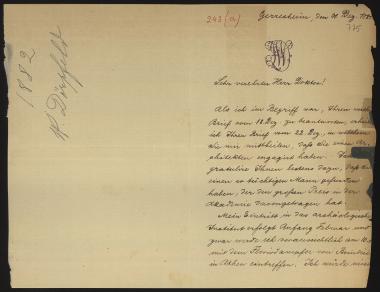 243 (a)
Gerresheim, den Dez.
775
1882
W Dörpfeld
Sehr verehrter Herr Doktor!
Als ich im Begriff war, Ihren
Brief vom 18 Dez. zu beantworten,
ich Ihren Brief vom 22. Dez., in welchem
Sie mir mittheilen, daß Sie einen Ar-
chitekten engagirt haben. Ich
gratulire Ihnen bestens dazu, daß
einen so tüchtigen Mann gefunden
haben, der den großen Preis in der
Akademie davongetragen hat.
Mein Eintritt in das archäologische
Institut erfolgt Anfang Februar und
zwar werde ich voraussichtlich am
mit dem Lloyddampfer von Brindisi
in Athen eintreffen. Ich würde